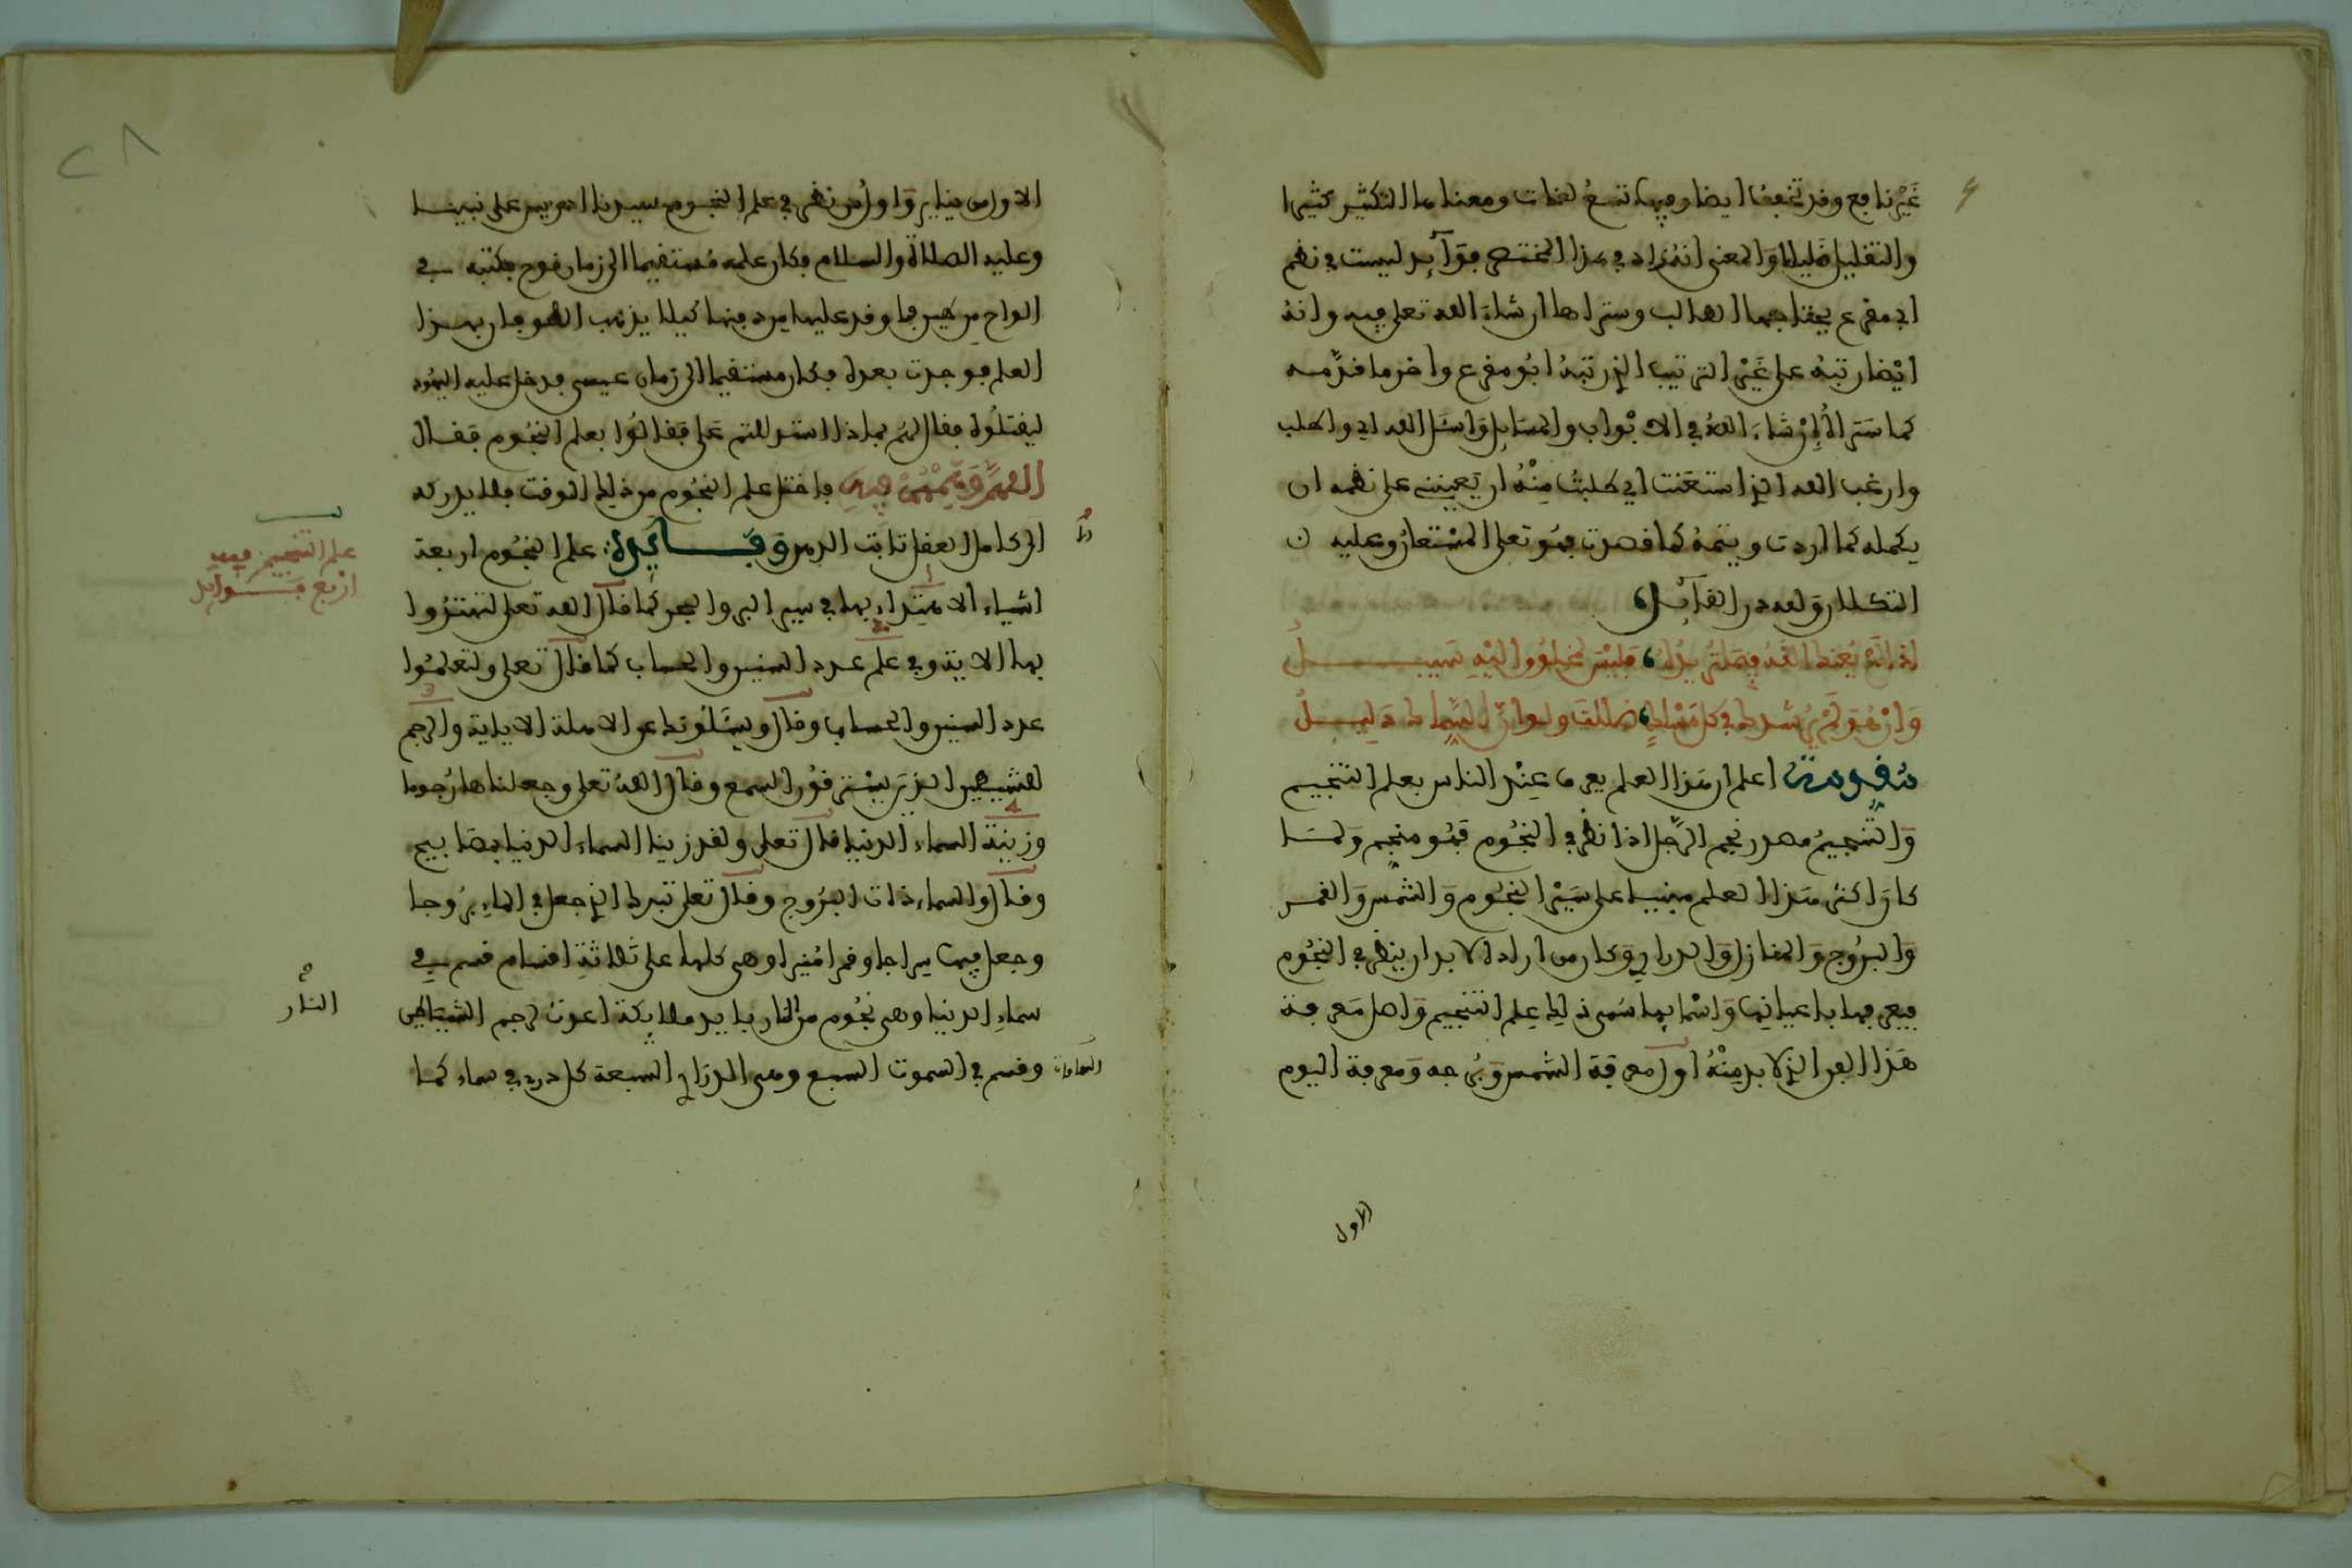 غَيْرُ نافع وقد تخفف ايضا وفيها تسعُ لغات ومعناها التكثير كثيرا
والتقليل قليلا وَالمعنى انهُ زاد في هذا المختصر فوَآئد ليست في نظم
ابي مقرع يحتاجها الطالب وستراها ان شاءَ الله تعلى فيه وانهُ
ايْضا رتبهُ على غَيْر الترتيب الذي رتبهُ ابُو مقرع واخر ما قدَّمه
كما سَترَاهُ اِنْ شاءَ اللهُ في الابْواب والمسَايِل وَاسئل الله اي واطلب
وارغب الله الذي استعَنت اي طلبتُ مِنْهُ ان يّعيننے على نظمه ان
يكمله كما اردت ويتمهُ كما قصدت فهُو تعلى المسْتعانُ وعليه
التكلان وَلله در القآئل
اذا لمْ يُعنك اللهُ فيمَا تريدُهُ فليْسَ لمخلوُق اليْهِ سَبيلُ
وَانْ هُوَ لمْ يُرشدك في كل مَسْلك ضللتَ ولو انّ السِّمَاك دَليلُ
مُقدمَة اعلم ان هَذا العلم يعرف عِنْد الناس بعلم التنجيم
وَالتنجيمُ مصدر نجم الرَّجل اذا نظر في النجُوم فهُو منجم وَلمَا
كانَ اكثر هَذا العلم مبنيا على سَيْر النجُوم وَالشمْس وَالقمر
وَالبرُوج وَالمنازل وَالدراري وَكان من اراده لا بد ان ينظر في النجُوم
فيعرفها باعيانها وَاسْمايها سُمى ذلك عِلم التنجيم وَاصل مَعرفة
هَذا الفن الذي لا بد مِنْهُ اولا معرفة الشمس وَبُرجه وَمعرفة اليوم
الاول
الاول من يناير وَاولُ من نظر في علم النجُوم سيدنا ادريس على نبينا
وعليه الصلاة والسلام فكان علمه مُستقيما الى زمان نوح فكتبه في
الواح من طين فاوقد عليها فرد منها كيلا يذهب الطوفان بهذا
العلم فوجدت بعده فكان مستقيما الى زمان عيسى فدخل عليه اليهُود
ليقتلُوه فقال لهُم بماذا استدللتم عَلي فقالوُا بعلم النجُوم فقال
اللهمَّ وَهِّمْهُمْ فيهِ فاختل علم النجُوم من ذلك الوقت فلا يدركه
الا كامل العقل ثابت الذهن وَفـائدة علم النجُوم اربعة
اشياء الاهتداء بها في سير البر والبحر كما قال الله تعلى لتهتدُوا
بها الاية وفي علم عدد السنين والحساب كما قال تعلى ولتعلمُوا
عدد السنين والحساب وقال ويسْئلُونك عن الاهلة الاية والرجم
للشيطين الذين يسْترقوُن السمع وقال اللهُ تعلى وجعلناها رُجوما
وزينة السماء الدنيا قال تعلى ولقد زينا السماء الدنيا بمصابيح
وقال والسماء ذات البرُوج وقال تعلى تبرك الذي جعل في السماءِ برُوجا
وجعل فيها سِراجا وقمرا مُنيرا وهى كلها على ثلاثةِ اقسام قسم في
سماءِ الدنيا وهى نجُوم من النار بايد ملايكة اعدت لرجم الشيطين
وقسم في السموت السبع وهى الدرَاري السبعة كل دري في سماء كما
علم التنجيم فيه
ارْبع فَـوايد
النار
السماوات
٢٨